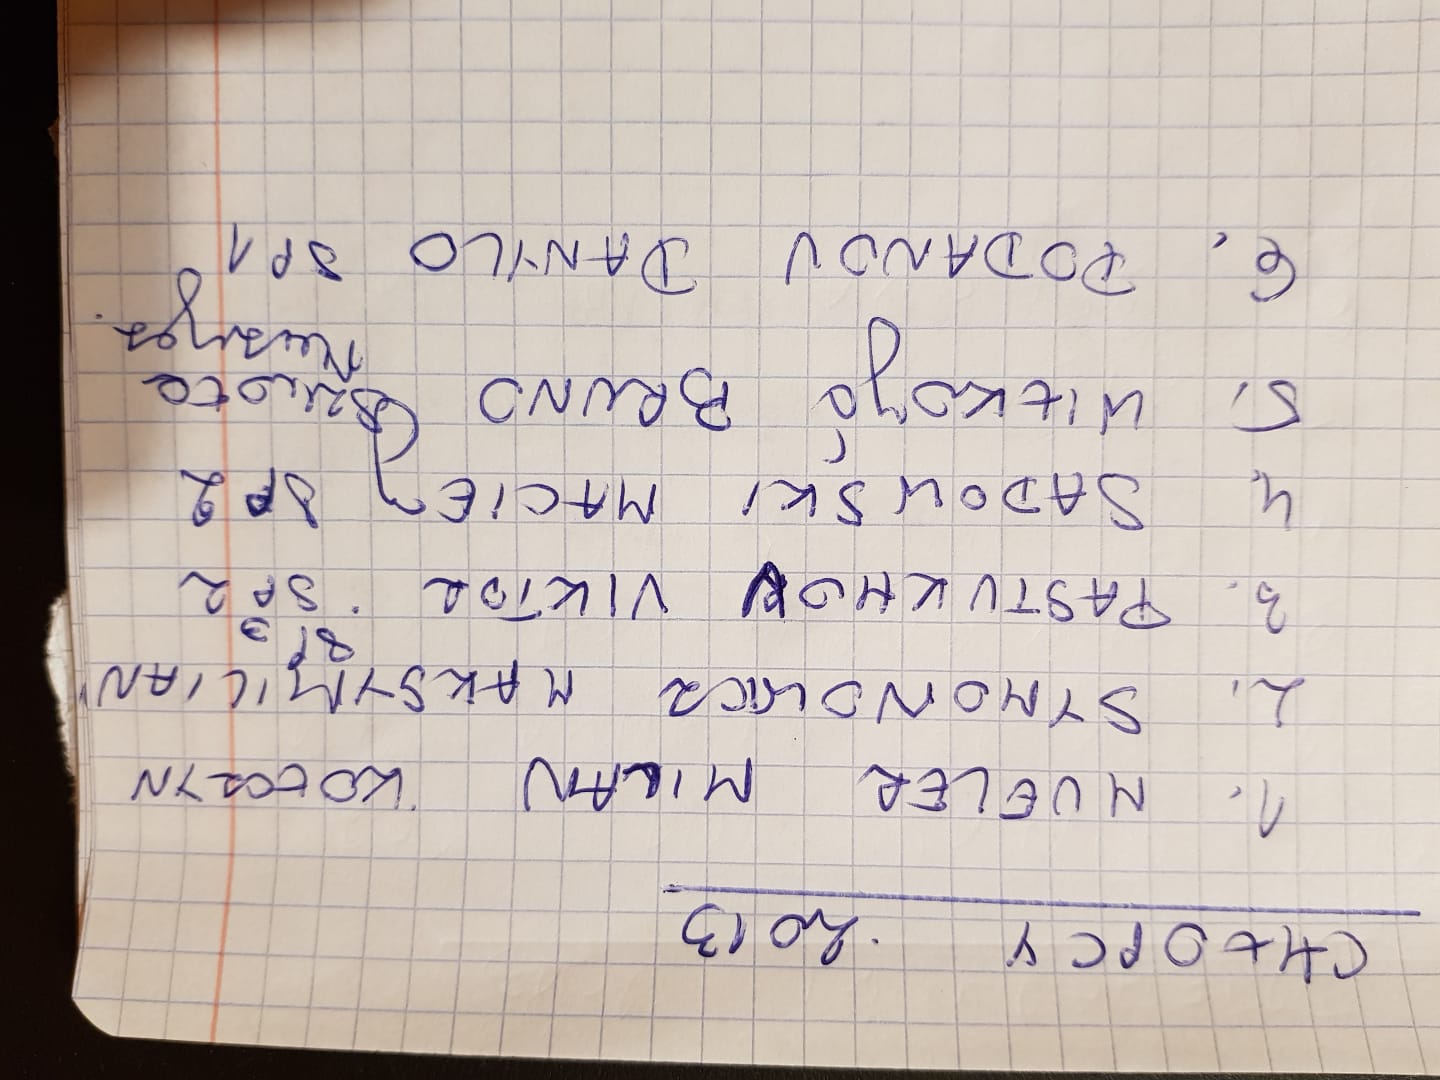 CHŁOPCY 2013
1. MUELER MILAN KOŁCZYN
2. SYMONOWICZ MAKSYMILIAN
SP3
3. PASTUKHOV VIKTOR SP2
4. SADOWSKI MACIEJ SP2
5. WITKOJĆ BRUNO Szkoła
6. PODANOV DANYLO SP1